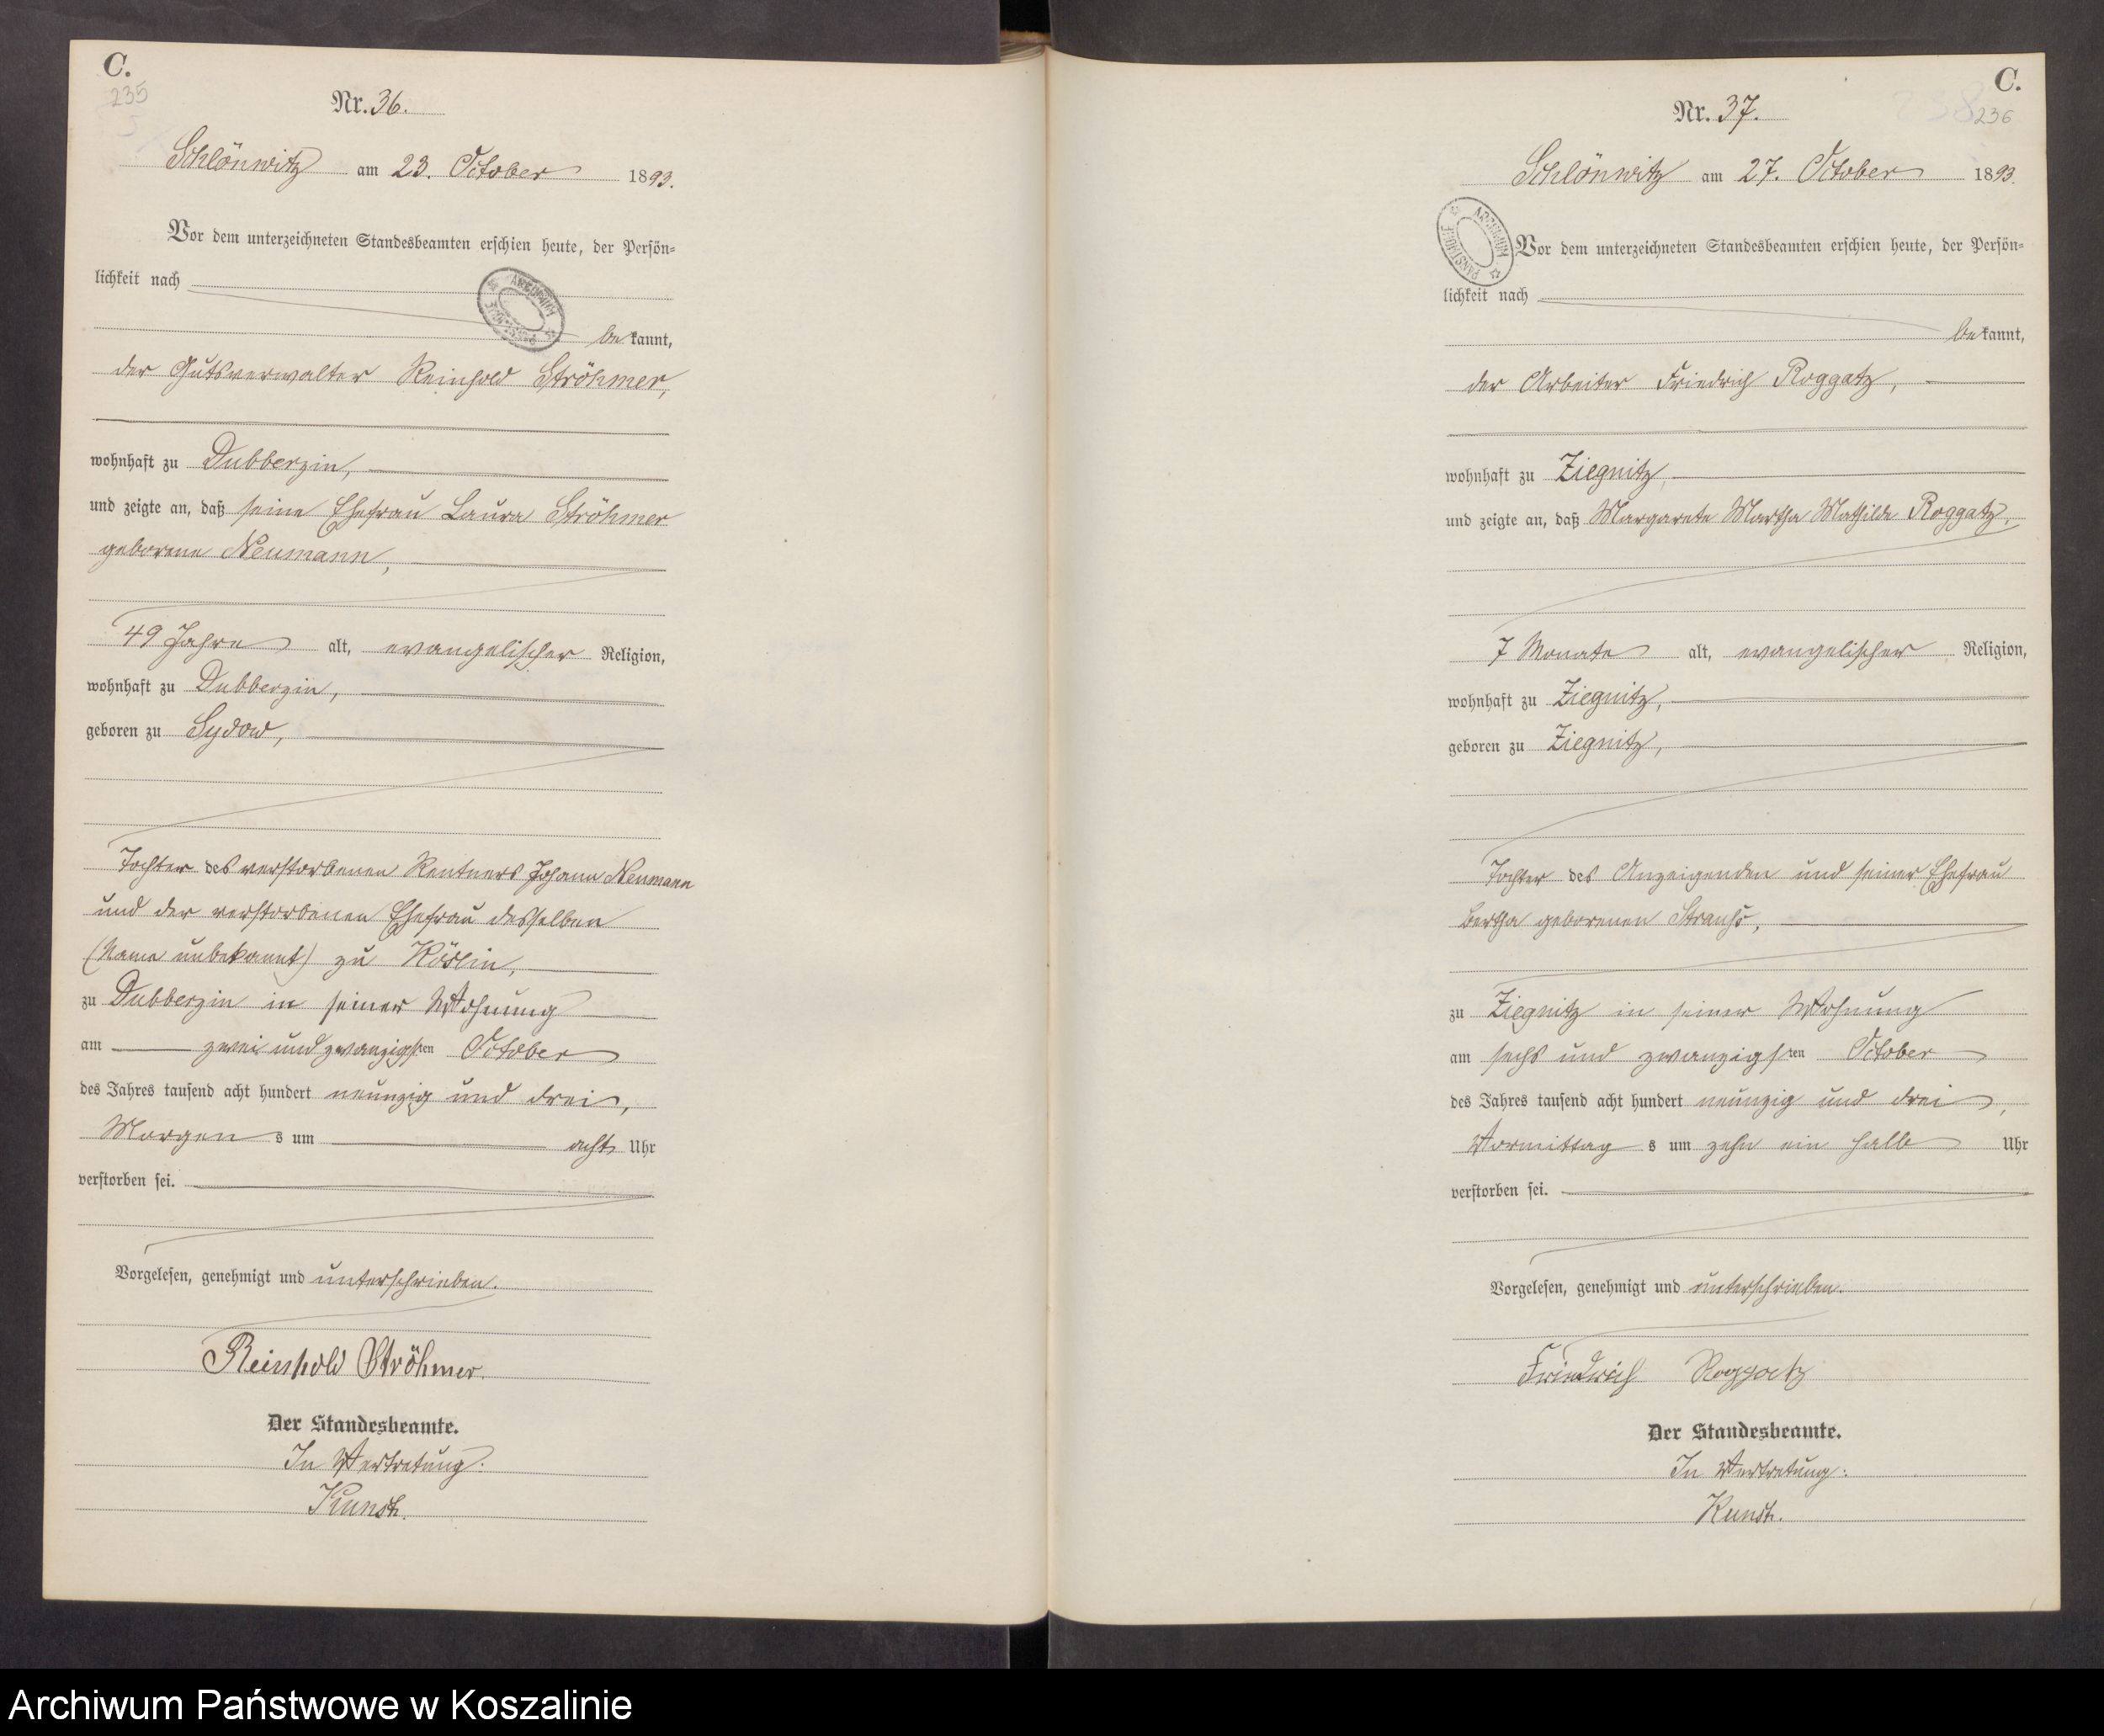 C.
235
Nr. 36.
Schlönwitz am 23. October 1893.
Vor dem unterzeichneten Standesbeamten erschien heute, der Persön-
lichkeit nach
bekannt,
der Gutsverwalter Reinhold Ströhmer,
wohnhaft zu Dubberzin,
und zeigte an, daß seine Ehefrau Laura Ströhmer
geborene Neumann,
49 Jahre alt, evangelischer Religion,
wohnhaft zu Dubberzin,
geboren zu Sydow,
Tochter des verstorbenen Rentners Johann Neumann
und der verstorbenen Ehefrau desselben
(Name unbekannt) zu Köslin,
zu Dubberzin in seiner Wohnung
am zwei und zwanzigsten October
des Jahres tausend acht hundert neunzig und drei,
Morgens um acht Uhr
verstorben sei.
Vorgelesen, genehmigt und unterschrieben.
Reinhold Ströhmer.
Der Standesbeamte.
In Vertretung.
C.
236
Nr. 37.
Schlönwitz am 27. October 1893.
Vor dem unterzeichneten Standesbeamten erschien heute, der Persön-
lichkeit nach
bekannt,
der Arbeiter Friedrich Roggatz,
wohnhaft zu Ziegnitz,
und zeigte an, daß Margarete Martha Mathilde Roggatz,
7 Monate alt, evangelischer Religion,
wohnhaft zu Ziegnitz,
geboren zu Ziegnitz,
Tochter des Anzeigenden und seiner Ehefrau
Bertha geborenen Strauß,
zu Ziegnitz in seiner Wohnung
am sechs und zwanzigsten October
des Jahres tausend acht hundert neunzig und drei,
Vormittags um zehn ein halb Uhr
verstorben sei.
Vorgelesen, genehmigt und unterschrieben.
Friedrich Roggatz
Der Standesbeamte.
In Vertretung:
Archiwum Państwowe w Koszalinie